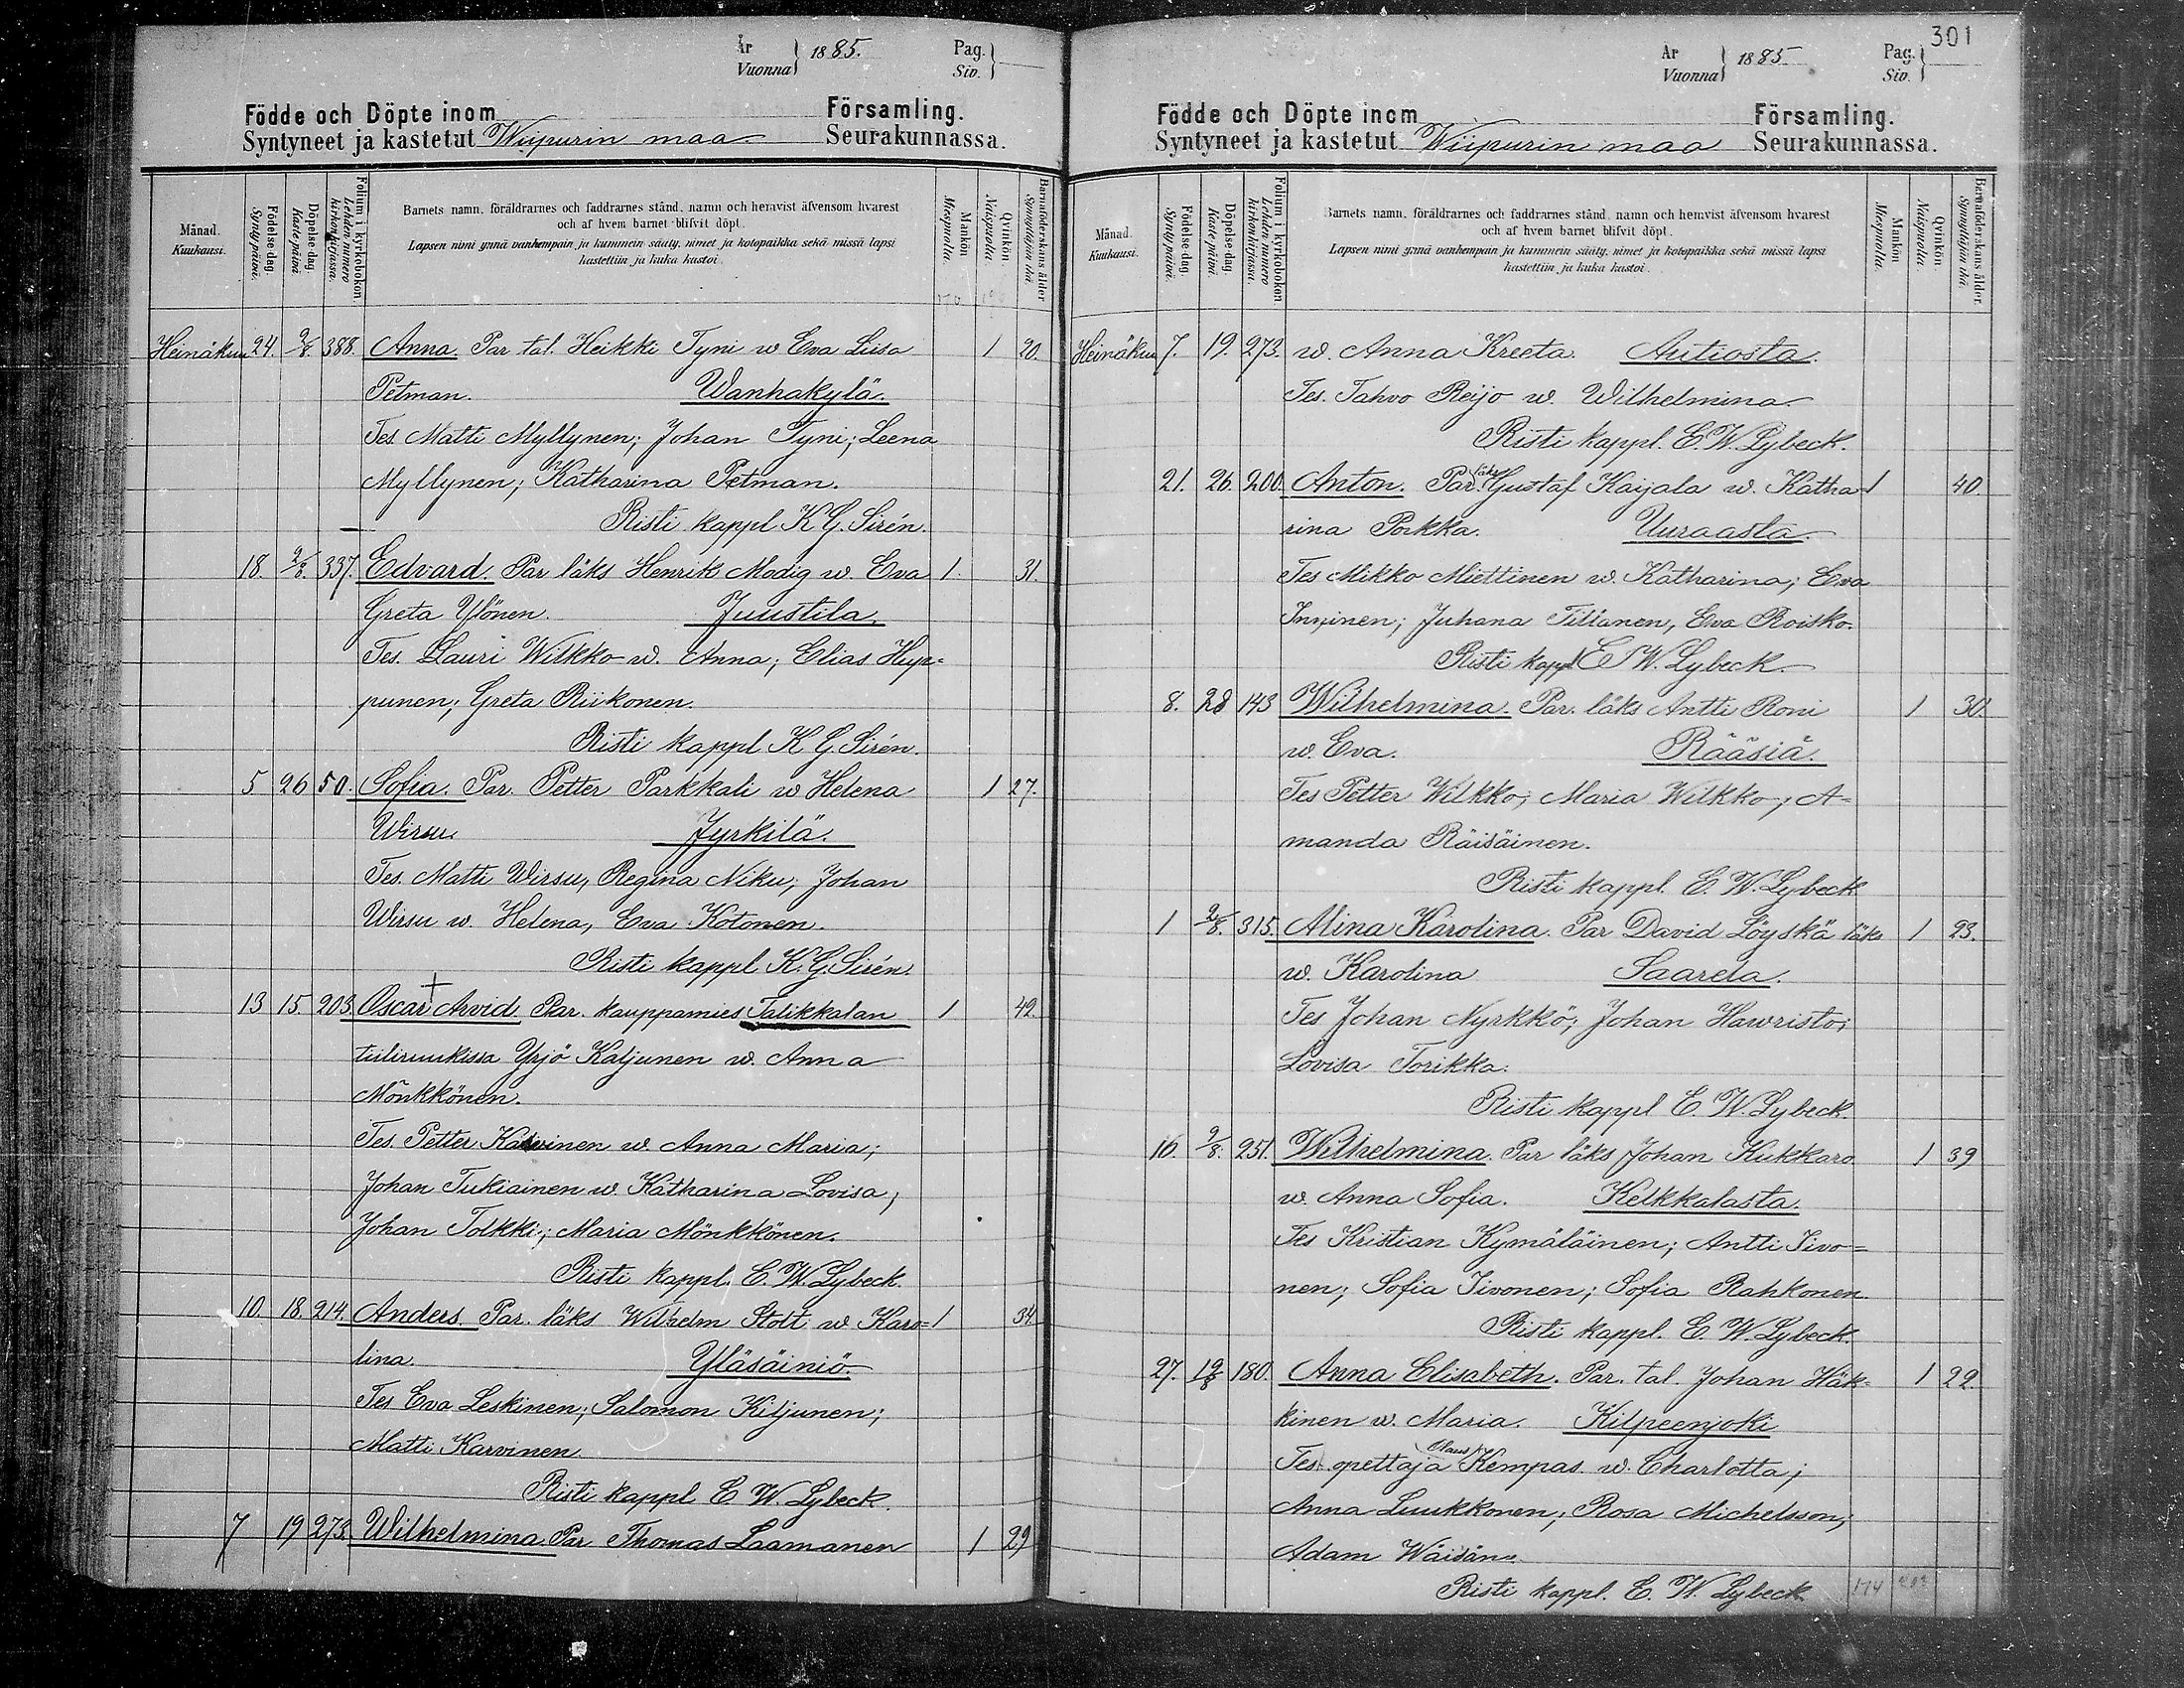 År
Vuonna } 1885.
Pag.
Siv. }
Födde och Döpte inom Församling.
Syntyneet ja kastetut Wiipurin maa Seurakunnassa.
Månad.
Kuukausi.
Födelse dag.
Synty päivä.
Döpelse dag.
Kaste päivä.
Folium i kyrkobokon.
Lehden numero kirkonkirjassa.
Barnets namn, föräldrarnes och faddrarnes stånd, namn och hemvist äfvensom hvarest
och af hvem barnet blifvit döpt.
Lapsen nimi ynnä vanhempain ja kummein sääty, nimet ja kotopaikka sekä missä lapsi
kastettiin ja kuka kastoi.
Mankön.
Miespuolia.
Qvinkön.
Naispuolia.
Barnaföderskans ålder.
Synnyttäjän ikä.
Heinäkuu 24. 2/8. 388. Anna. Par tal. Heikki Tyni w Eva Liisa 1 20.
Petman. Wanhakylä.
Tes. Matti Myllynen; Johan Tyni; Leena
Myllynen; Katharina Petman.
Risti kappl K G. Sirén.
18. 2/8. 337. Edvard. Par läks Henrik Modig w. Eva 1. 31.
Greta Ylönen. Juustila.
Tes. Lauri Wilkko w. Anna; Elias Hup=
punen; Greta Riikonen.
Risti kappl K G. Sirén.
5 26 50. Sofia. Par. Petter Parkkali w Helena 1 27.
Wirsu Jyrkilä.
Tes. Matti Wirsu, Regina Niku; Johan
Wirsu w. Helena, Eva Kotonen.
Risti kappl K. G. Sirén.
13 15 203. Oscar Arvid. Par. kauppamies Talikkalan 1 42
tiiliruukissa Yrjö Katjunen w. Anna
Mönkkönen.
Tes. Petter Karvinen w. Anna Maria;
Johan Tukiainen w. Katharina Lovisa;
Johan Tolkki; Maria Mönkkönen.
Risti kappl. E. W. Lybeck.
10. 18. 214. Anders. Par. läks Wilhelm Stolt w Karo= 1 34
lina. Yläsäiniö.
Tes Eva Leskinen; Salomon Kiljunen;
Matti Karvinen
Risti kappl E W. Lybeck.
7 19 273. Wilhelmina. Par Thomas Laamanen 1 29
301
År
Vuonna } 1885
Pag.
Siv. }
Födde och Döpte inom Församling.
Syntyneet ja kastetut Wiipurin maa Seurakunnassa.
Månad.
Kuukausi.
Födelse dag.
Synty päivä.
Döpelse dag.
Kaste päivä.
Folium i kyrkobokon.
Lehden numero kirkonkirjassa.
Barnets namn, föräldrarnes och faddrarnes stånd, namn och hemvist äfvensom hvarest
och af hvem barnet blifvit döpt.
Lapsen nimi ynnä vanhempain ja kummein sääty, nimet ja kotopaikka sekä missä lapsi
kastettiin ja kuka kastoi.
Mankön.
Miespuolia.
Qvinkön.
Naispuolia.
Barnaföderskans ålder.
Synnyttäjän ikä.
Heinäkuu 7. 19. 273. w. Anna Kreeta. Autiosta.
Tes. Tahvo Reijo w. Wilhelmina.
Risti kappl. E. W. Lybeck.
21. 26. 200. Anton. Par. läks Gustaf Kaijala w. Katha 1 40.
rina Porkka. Uuraasta.
Tes Mikko Miettinen w. Katharina; Eva
Inninen; Juhana Tiltanen, Eva Roisko.
Risti kappl E W. Lybeck.
8. 28 143 Wilhelmina. Par. läks Antti Roni 1 30.
w. Eva. Rääsiä.
Tes Petter Wilkko; Maria Wilkko; A=
manda Räisäinen.
Risti kappl. E. W. Lybeck
1 2/8. 315. Alina Karolina. Par David Löyskä läks 1 23.
w. Karolina Saarela.
Tes Johan Nyrkkö; Johan Hawristo;
Lovisa Torikka.
Risti kappl E. W. Lybeck.
16. 2/8. 251. Wilhelmina. Par läks Johan Kukkaro 1 39
w. Anna Sofia. Kelkkalasta.
Tes Kristian Kymäläinen; Antti Iivo=
nen; Sofia Iivonen; Sofia Rahkonen
Risti kappl. E. W. Lybeck.
27. 12/8 180. Anna Elisabeth. Par. tal. Johan Häk= 1 22.
kinen w. Maria. Kilpeenjoki
Tes. opettaja Claus Kempas w. Charlotta;
Anna Luukkonen; Rosa Michelsson;
Adam Wäisänen
Risti kappl. E. W. Lybeck 174